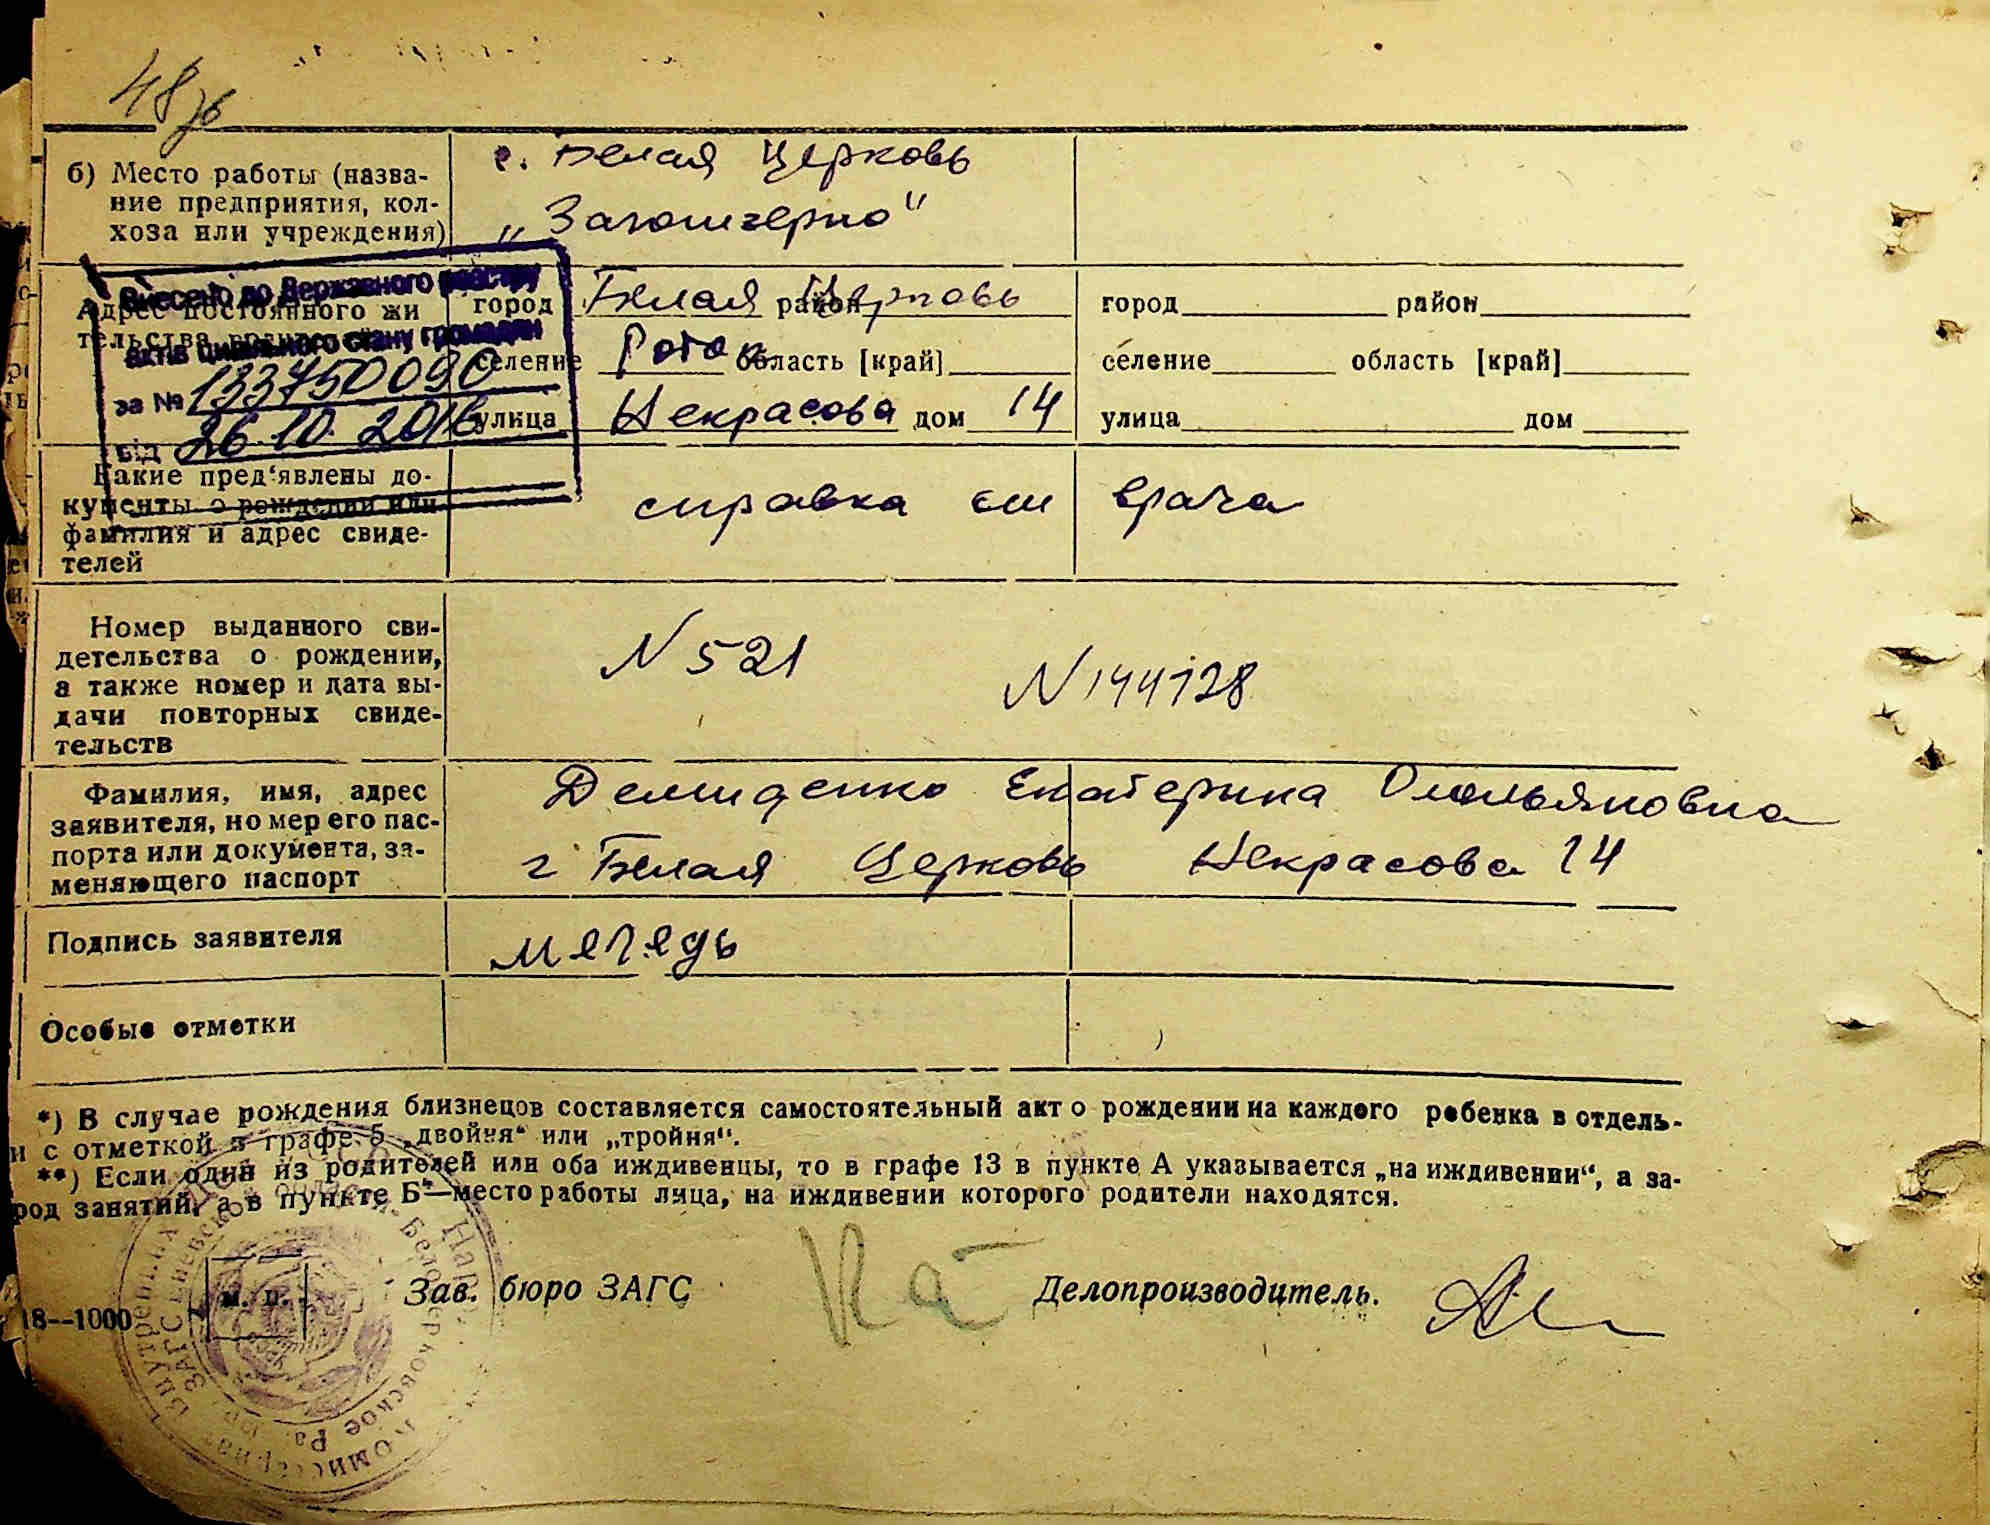 48 зв
б) Место работы (назва-
ние предприятия, кол-
хоза или учреждения)
г. Белая Церковь
„Заготзерно"
Внесено до Державного реєстру
актів цивільного стану громадян
за № 133750090
від 26.10.2016
Адрес постоянного жи
тельства
город Белая Церковь район
селение Роток область [край]
улица Некрасова дом 14
город район
селение область [край]
улица дом
Какие пред'явлены до-
кументы о рождении или
фамилия и адрес свиде-
телей
справка от врача
Номер выданного сви-
детельства о рождении,
а также номер и дата вы-
дачи повторных свиде-
тельств
N 521
N 144128
Фамилия, имя, адрес
заявителя, номер его пас-
порта или документа, за-
меняющего паспорт
Демиденко Екатерина Омельяновна
г Белая Церковь Некрасова 14
Подпись заявителя
Особые отметки
*) В случае рождения близнецов составляется самостоятельный акт о рождении на каждого ребенка в отдель-
и с отметкой в графе 5 „двойня" или „тройня".
**) Если один из родителей или оба иждивенцы, то в графе 13 в пункте А указывается „на иждивении", а за-
род занятий, а в пункте Б—место работы лица, на иждивении которого родители находятся.
М. П.
Зав. бюро ЗАГС
Делопроизводитель.
18--1000